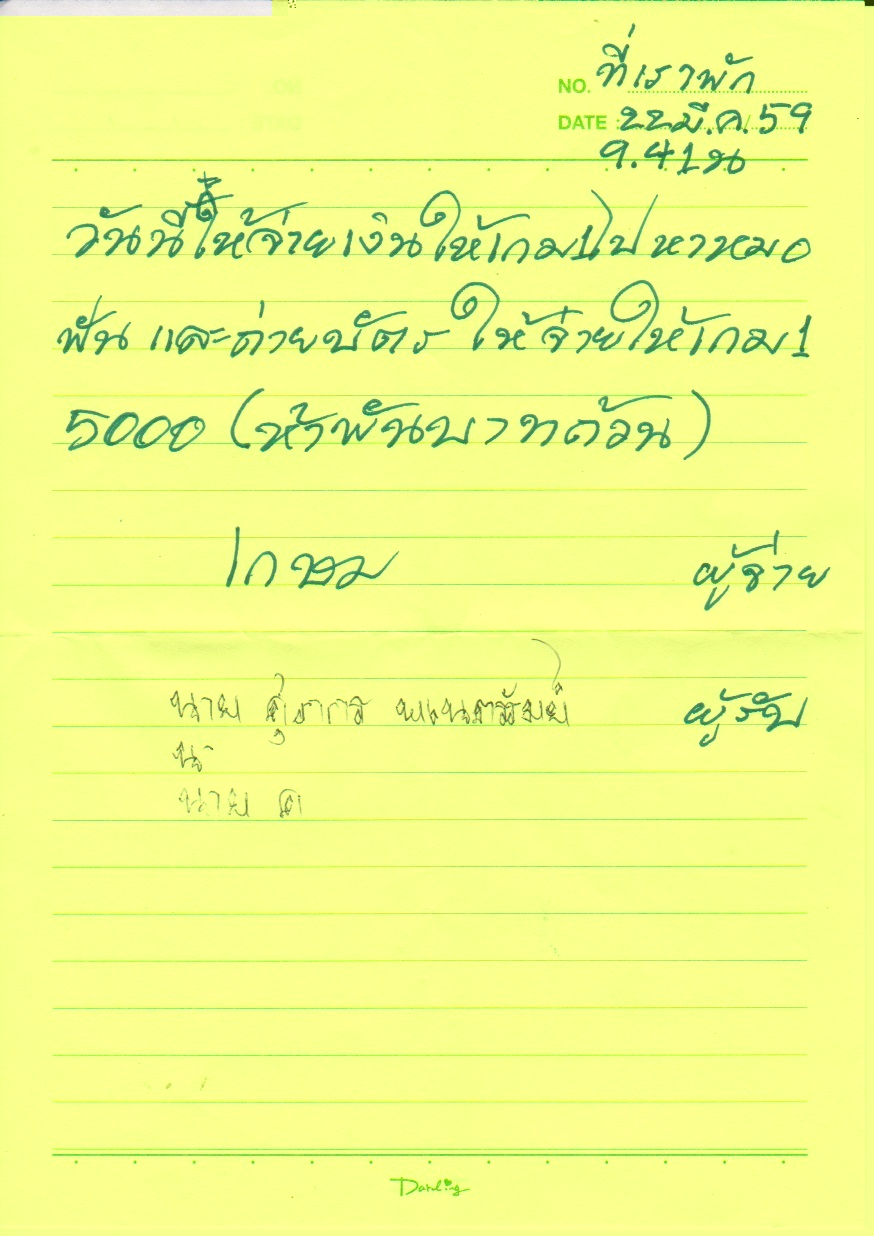 NO. ที่เราพัก
DATE 22 มี.ค. 59
9.41 น
วันนี้ให้จ่ายเงินให้เกม1ไปหาหมอ
ฟัน และถ่ายบัตร ให้จ่ายให้เกม1
5000 (ห้าพันบาทถ้วน)
เกษม ผู้จ่าย
นาย ผู้รับ
น
นาย ค
Darling